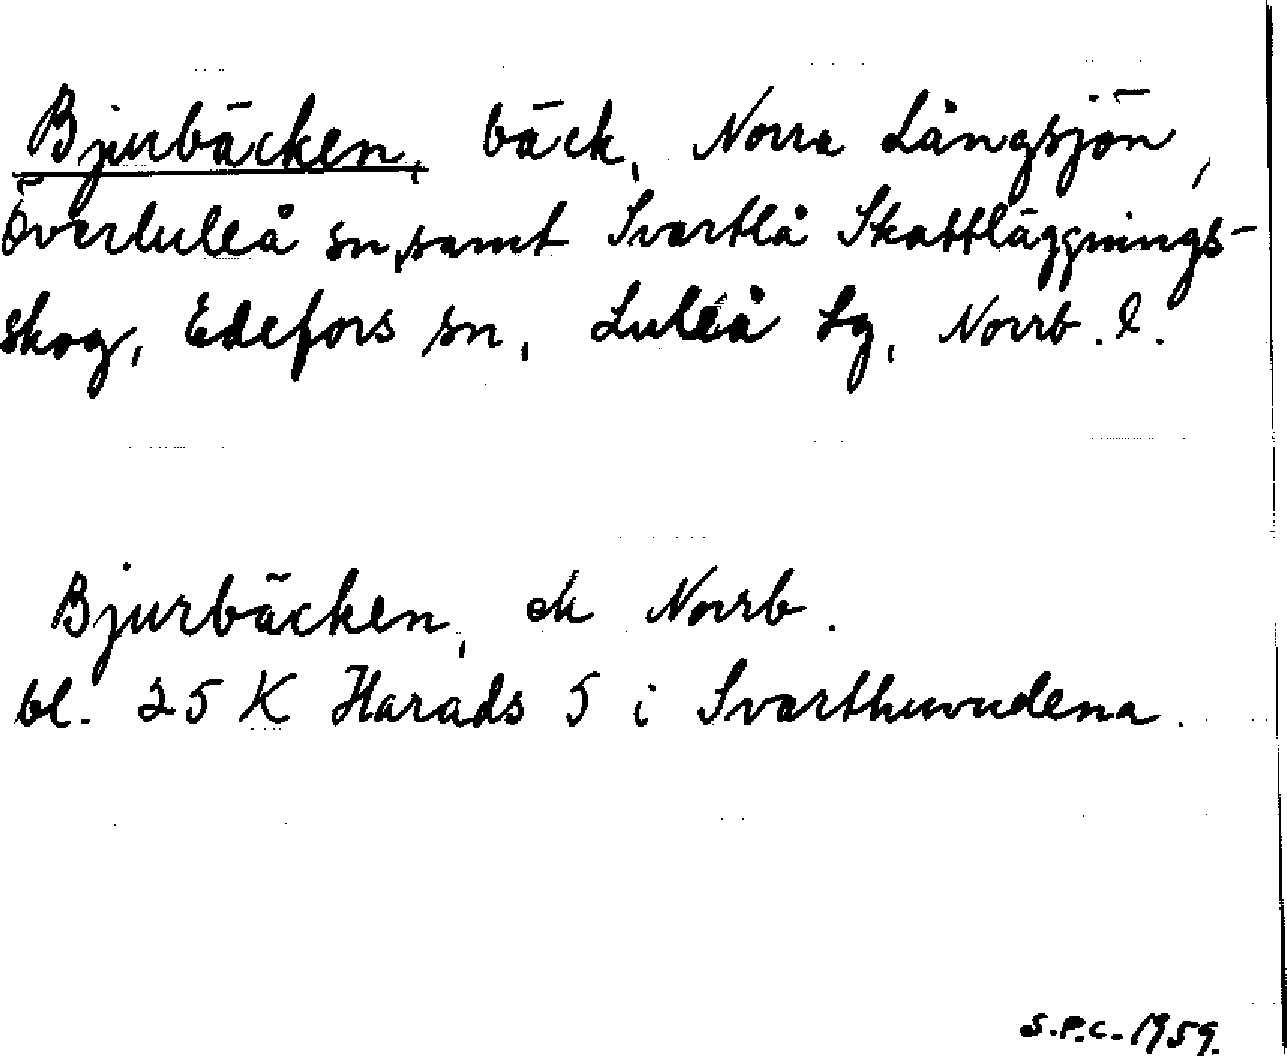 Bjurbäcken, bäck, Norra Långsjön,
Överluleå sn, samt Svartlå Skattläggnings-
skog, Edefors sn, Luleå lg, Norrb. l.
Bjurbäcken, ek Norrb.
bl. 25 K Harads 5 i Svarthuvudena.
S.P.C. 1959.